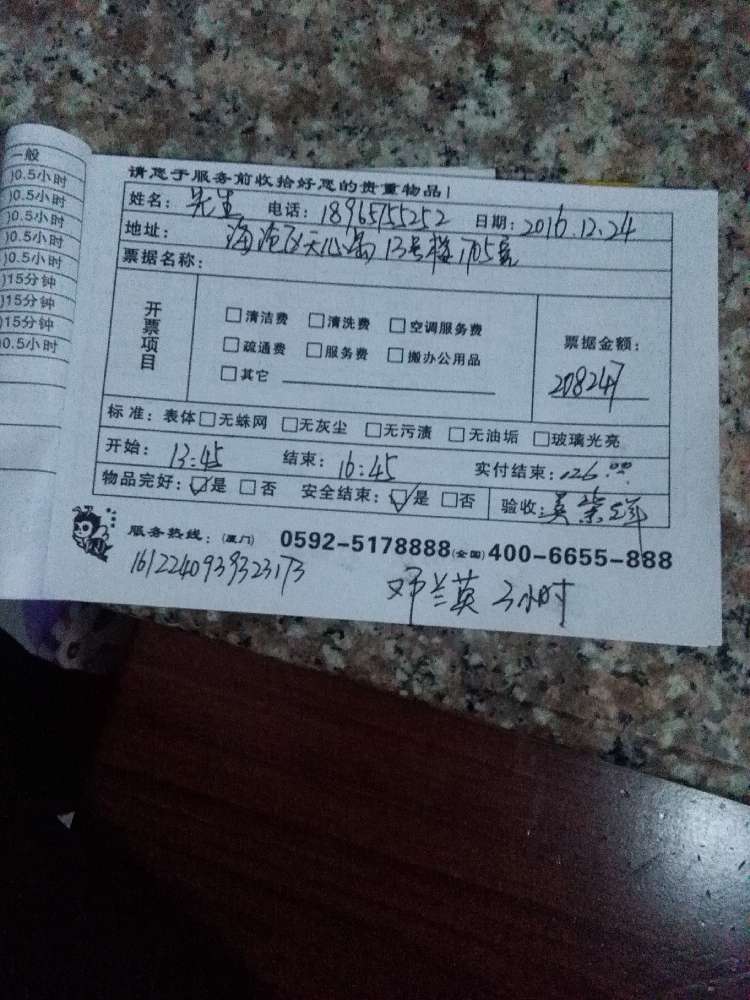 一般
)0.5小时
)0.5小时
)0.5小时
)0.5小时
)0.5小时
)15分钟
)15分钟
)15分钟
)0.5小时
请您于服务前收拾好您的贵重物品!
姓名: 先生 电话: 18965155252 日期: 2016.12.24
地址: 海沧区天心岛13号楼1705室
票据名称:
开票项目
□清洁费 □清洗费 □空调服务费
□疏通费 □服务费 □搬办公用品
□其它
票据金额:
208247
标准: 表体□无蛛网 □无灰尘 □无污渍 □无油垢 □玻璃光亮
开始: 13:45 结束: 16:45 实付结束: 126
物品完好: ☑是 □否 安全结束: ☑是 □否 验收: 吴
服务热线: (厦门) 0592-5178888 (全国) 400-6655-888
1612240939323173
邓兰英 3小时